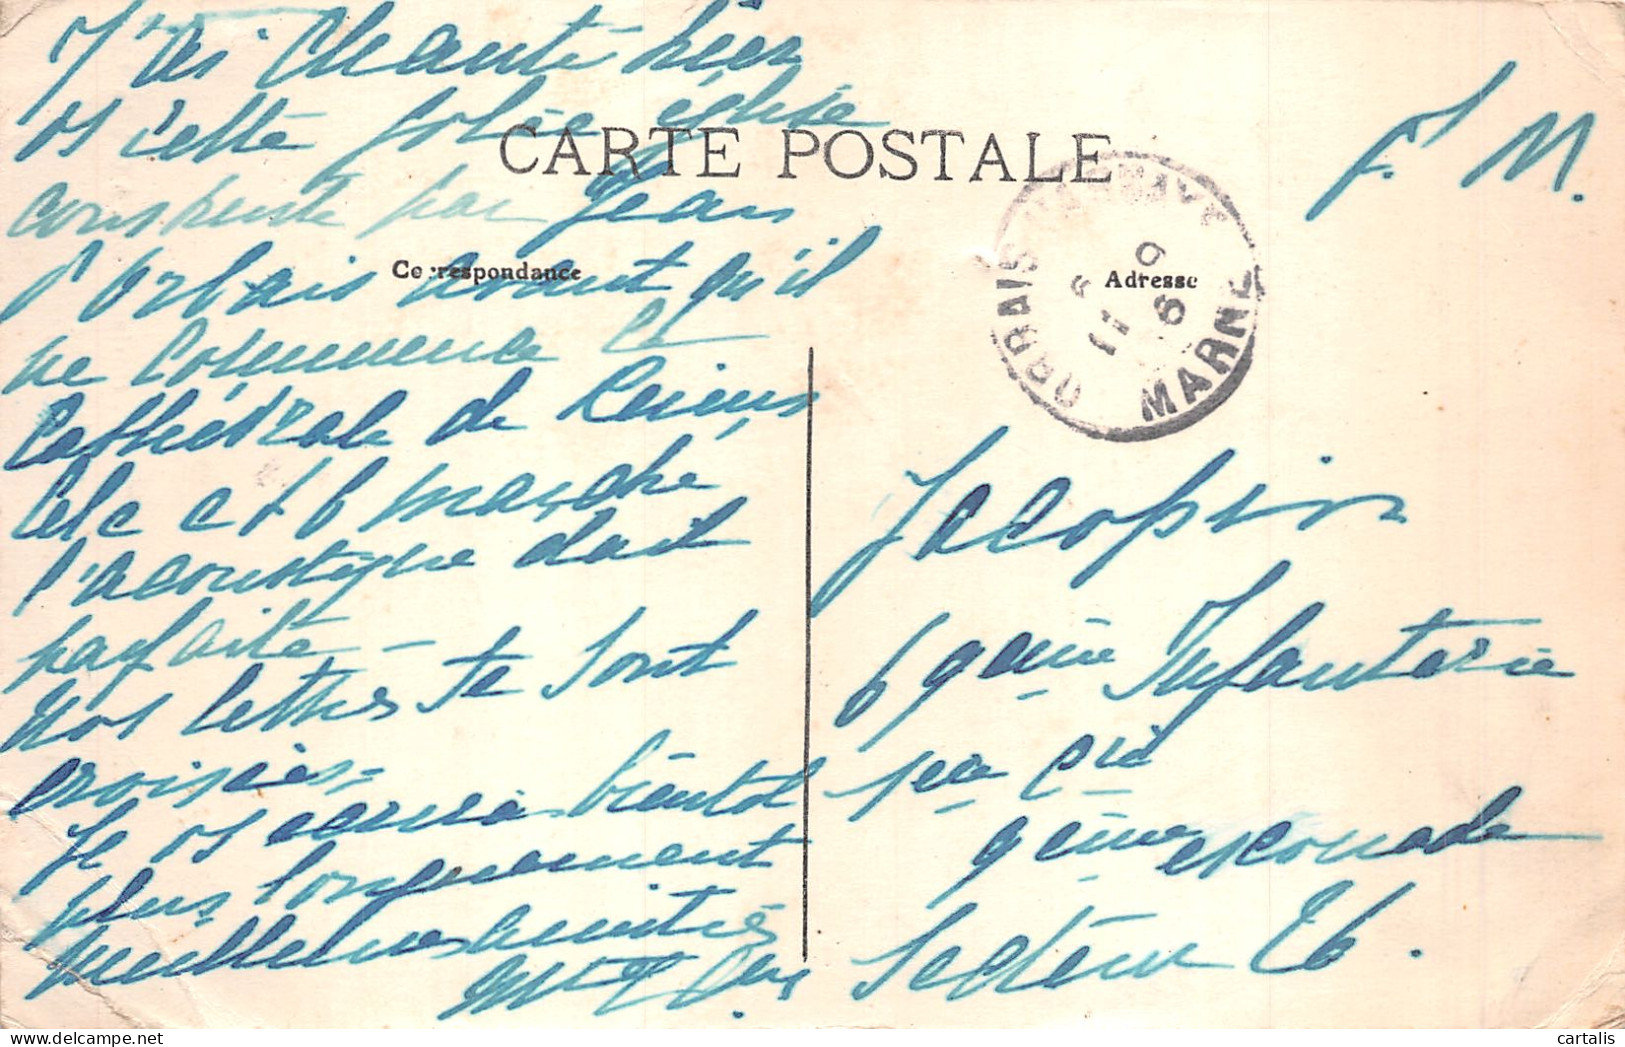 J'ai chanté hier
ds cette jolie église
construite par Jean
d'Orbais avant qu'il
ne commence la
Cathédrale de Reims
Cela a bien marché
l'acoustique était
parfaite —
Nos lettres se sont
croisées —
Je vs écrirai bientôt
plus longuement
Meilleures amitiés
CARTE POSTALE
Correspondance
Adresse
ORBAIS
MARNE
F. M.
Jacopin
69ème Infanterie
1ère Cie
9ème escouade
Secteur
cartalis
delcampe.net